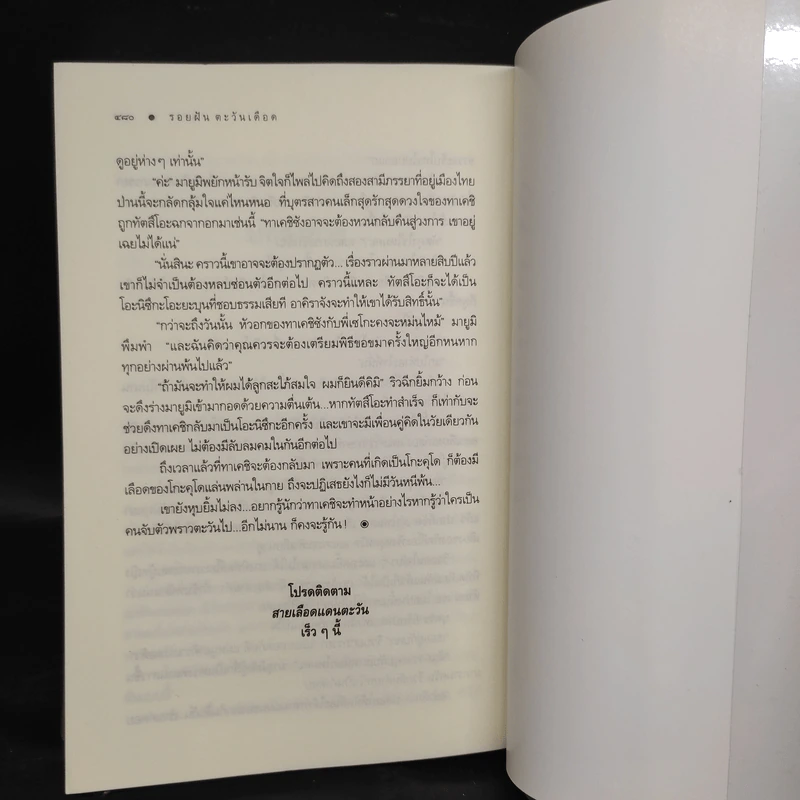 ๔๘๐ ● รอยฝัน ตะวันเดือด
ดูอยู่ห่างๆ เท่านั้น"
"ค่ะ" มายูมิพยักหน้ารับ จิตใจก็ไพล่ไปคิดถึงสองสามีภรรยาที่อยู่เมืองไทย
ป่านนี้จะกลัดกลุ้มใจแค่ไหนหนอ ที่บุตรสาวคนเล็กสุดรักสุดดวงใจของทาเคชิ
ถูกทัตสึโอะฉกจากอกมาเช่นนี้ "ทาเคชิซังอาจจะต้องหวนกลับคืนสู่วงการ เขาอยู่
เฉยไม่ได้แน่"
"นั่นสินะ คราวนี้เขาอาจจะต้องปรากฏตัว... เรื่องราวผ่านมาหลายสิบปีแล้ว
เขาก็ไม่จำเป็นต้องหลบซ่อนตัวอีกต่อไป คราวนี้แหละ ทัตสึโอะก็จะได้เป็น
โอะนิซึกะโอะยะบุนที่ชอบธรรมเสียที อาคิราจังจะทำให้เขาได้รับสิทธิ์นั้น"
"กว่าจะถึงวันนั้น หัวอกของทาเคชิซังกับพี่เซโกะคงจะหม่นไหม้" มายูมิ
พึมพำ "และฉันคิดว่าคุณควรจะต้องเตรียมพิธีขอขมาครั้งใหญ่อีกหนหาก
ทุกอย่างผ่านพ้นไปแล้ว"
"ถ้ามันจะทำให้ผมได้ลูกสะใภ้สมใจ ผมก็ยินดีคิมิ" ริวฉีกยิ้มกว้าง ก่อน
จะดึงร่างมายูมิเข้ามากอดด้วยความตื่นเต้น...หากทัตสึโอะทำสำเร็จ ก็เท่ากับจะ
ช่วยดึงทาเคชิกลับมาเป็นโอะนิซึกะอีกครั้ง และเขาจะมีเพื่อนคู่คิดในวัยเดียวกัน
อย่างเปิดเผย ไม่ต้องมีลับลมคมในกันอีกต่อไป
ถึงเวลาแล้วที่ทาเคชิจะต้องกลับมา เพราะคนที่เกิดเป็นโกะคุโด ก็ต้องมี
เลือดของโกะคุโดแล่นพล่านในกาย ถึงจะปฏิเสธยังไงก็ไม่มีวันหนีพ้น...
เขายังหุบยิ้มไม่ลง...อยากรู้นักว่าทาเคชิจะทำหน้าอย่างไรหากรู้ว่าใครเป็น
คนจับตัวพราวตะวันไป...อีกไม่นาน ก็คงจะรู้กัน!
โปรดติดตาม
สายเลือดแดนตะวัน
เร็ว ๆ นี้